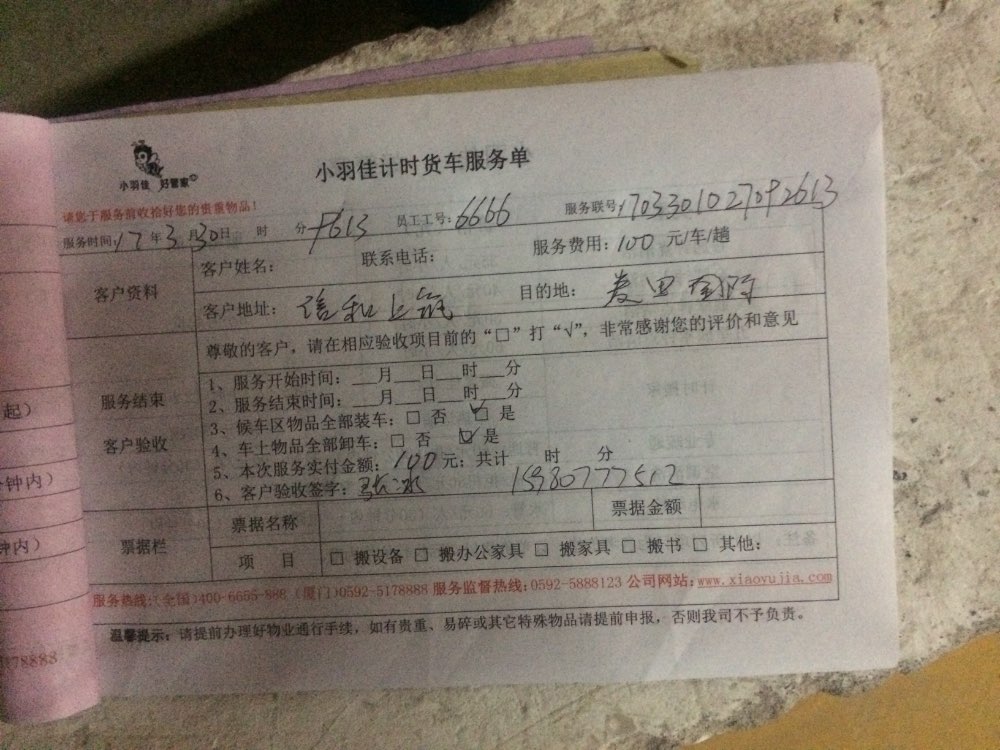 小羽佳 好管家
小羽佳计时货车服务单
请您于服务前收拾好您的贵重物品！
服务时间：17年3月30日 时 分 F613 员工工号：6666 服务联号 1703301027092613
客户资料
客户姓名： 联系电话： 服务费用：100 元/车/趟
客户地址：信和上筑 目的地：娄里国际
尊敬的客户，请在相应验收项目前的“□”打“√”，非常感谢您的评价和意见
服务结束
客户验收
1、服务开始时间：__月__日__时__分
2、服务结束时间：__月__日__时__分
3、候车区物品全部装车：□ 否 ☑ 是
4、车上物品全部卸车：□ 否 ☑ 是
5、本次服务实付金额：100元；共计 时 分
6、客户验收签字：张冰 15980777512
票据栏
票据名称 票据金额
项 目 □ 搬设备 □ 搬办公家具 □ 搬家具 □ 搬书 □ 其他：
服务热线：（全国）400-6655-888（厦门）0592-5178888 服务监督热线：0592-5888123 公司网站：www.xiaoyujia.com
温馨提示：请提前办理好物业通行手续，如有贵重、易碎或其它特殊物品请提前申报，否则我司不予负责。
起）
钟内）
钟内）
178888